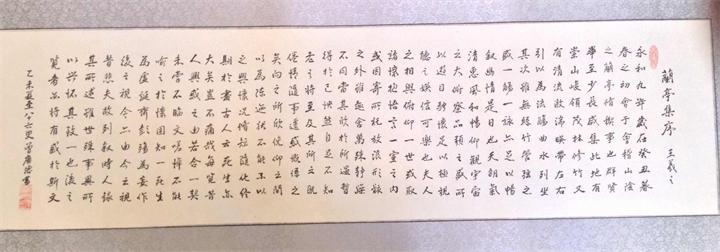 蘭亭集序 王羲之
永和九年歲在癸丑暮
春之初會于會稽山陰
之蘭亭脩禊事也群賢
畢至少長咸集此地有
崇山峻領茂林修竹又
有清流激湍暎帶左右
引以為流觴曲水列坐
其次雖無絲竹管弦之
盛一觴一詠亦足以暢
叙幽情是日也天朗氣
清惠風和暢仰觀宇宙
之大俯察品類之盛所
以遊目騁懷足以極視
聽之娛信可樂也夫人
之相與俯仰一世或取
諸懷抱悟言一室之內
或因寄所託放浪形骸
之外雖趣舍萬殊靜躁
不同當其欣於所遇暫
得於己怏然自足不知
老之將至及其所之既
惓情隨事遷感慨係之
矣向之所欣俛仰之間
以為陳迹猶不能不以
之興懷況脩短隨化終
期於盡古人云死生亦
大矣豈不痛哉每覽昔
人興感之由若合一契
未嘗不臨文嗟悼不能
喻之於懷固知一死生
為虛誕齊彭殤為妄作
後之視今亦由今之視
昔悲夫故列敘時人錄
其所述雖世殊事異所
以興懷其致一也後之
覽者亦將有感於斯文
乙未夏 八六叟 書